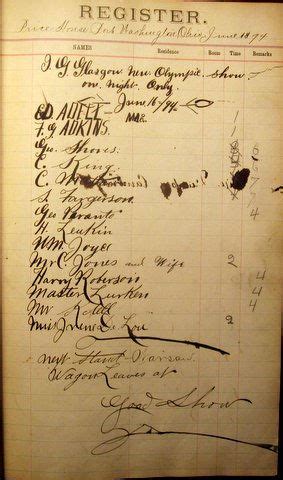 REGISTER.
Price House Port Washington Ohio June 1894
NAMES Residence Room Time Remarks
J G Glasgow New Olympic Show
on night Only.
June 16/94
ED ADELL MGR.
F. G ADKINS.
Geo. Shores
C. King
C.
S Fargerson
Geo Peranto
H. Leukin
Wm Joyer
Mr C Jones and Wife 2
Harry Roberson 4
Master Lurken 4
Mr 4
Miss Lou 2
next Stand Warsaw
Wagon Leaves at
Good Show